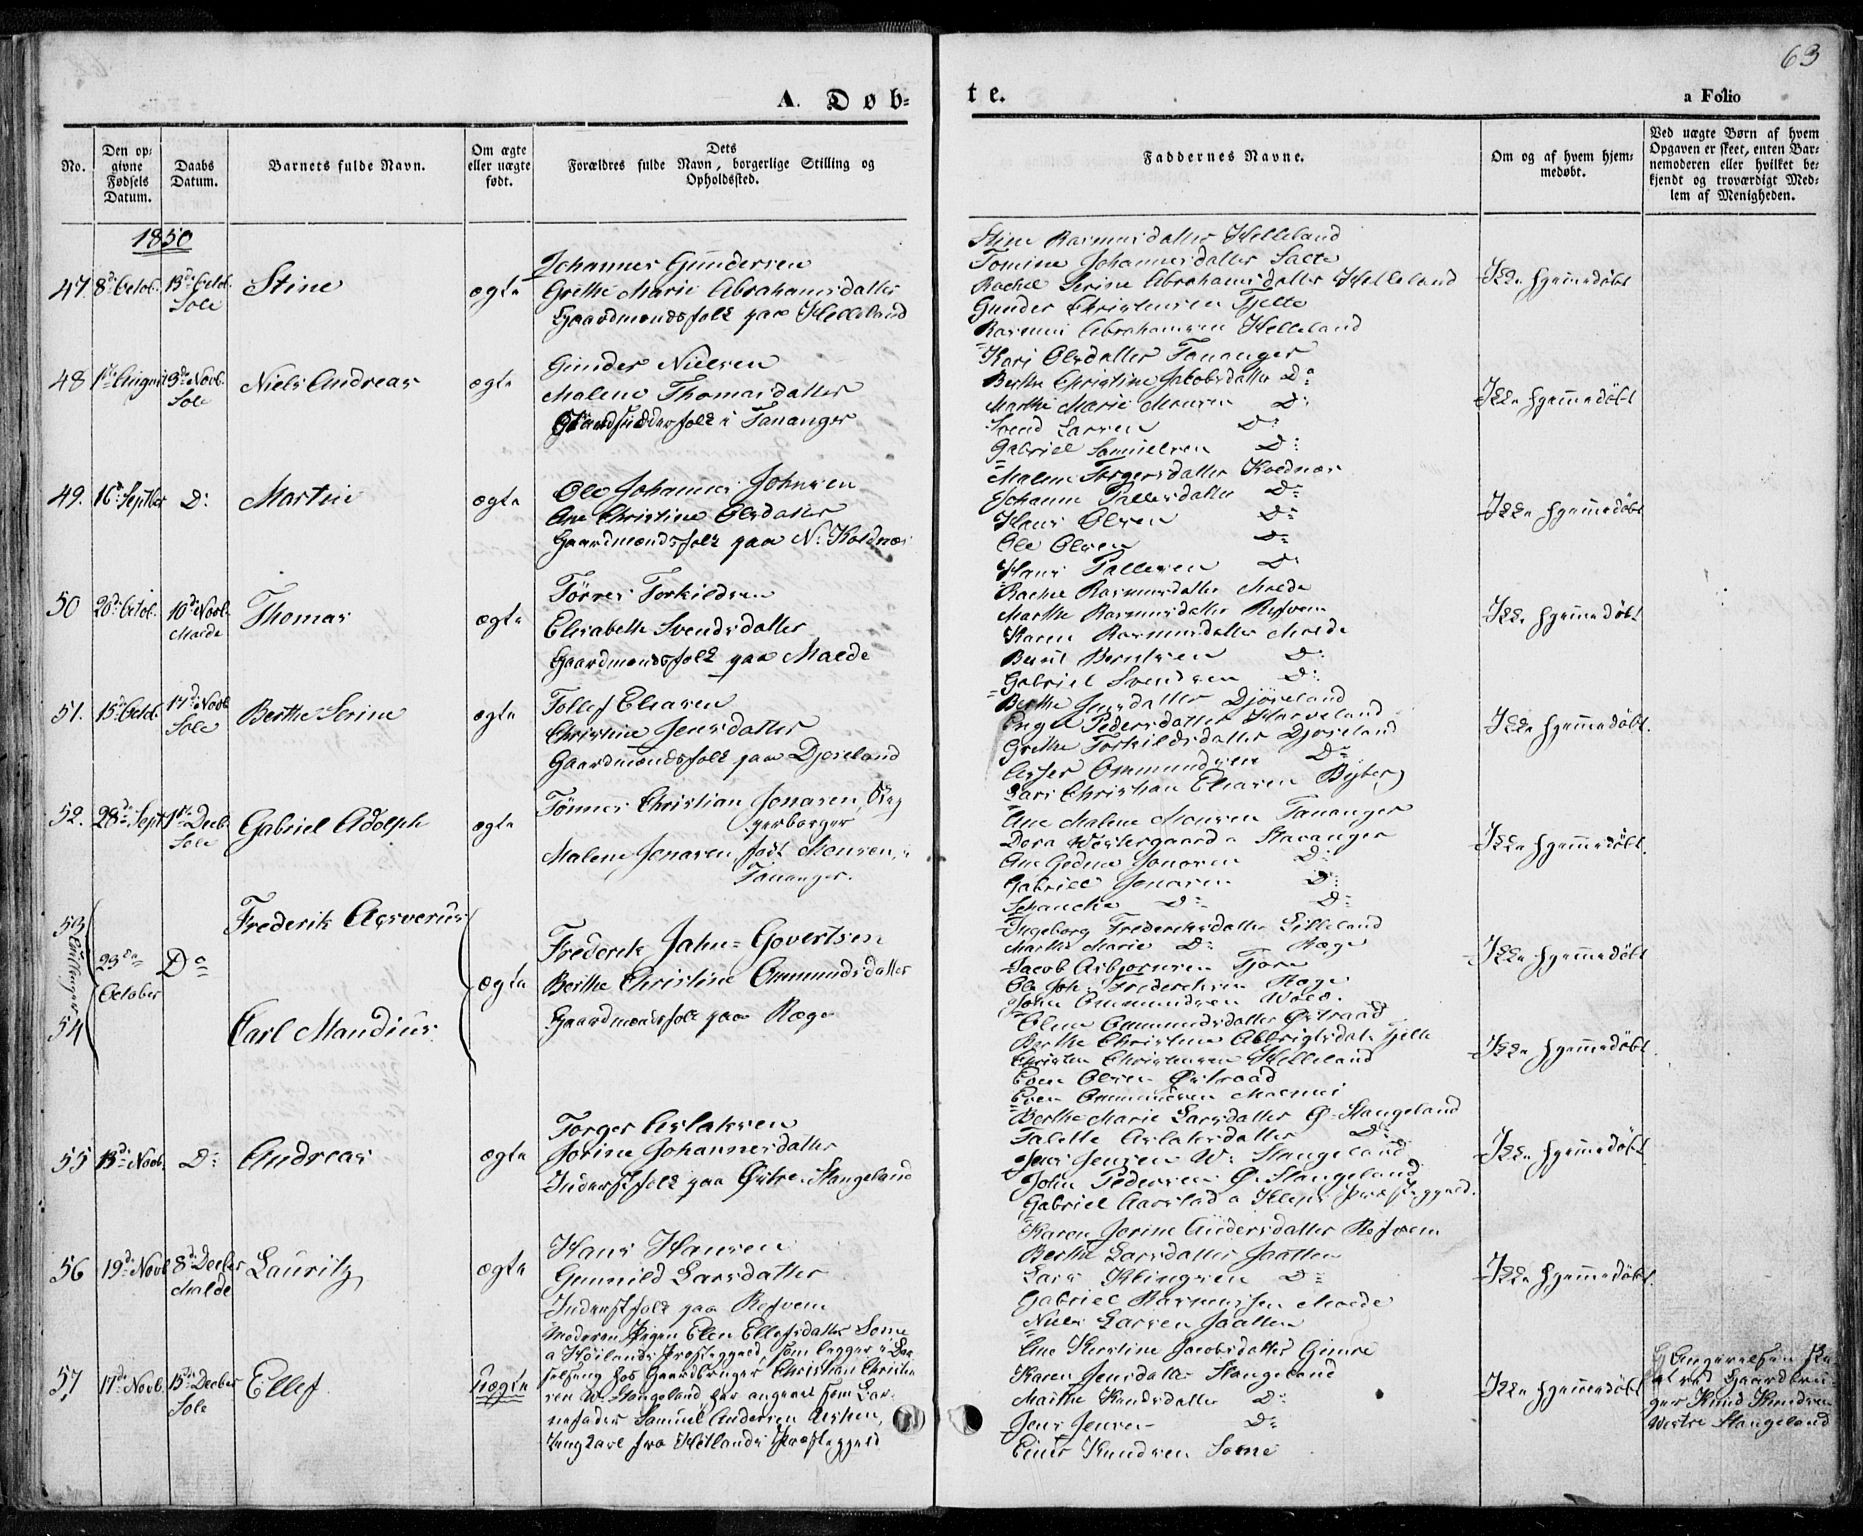 63
A. Døb=
te.
a Folio
No.
Den op=
givne
Fødsels
Datum.
Daabs
Datum.
Barnets fulde Navn.
Om ægte
eller uægte
født.
Dets
Forældres fulde Navn, borgerlige Stilling og
Opholdssted.
Faddernes Navne.
Om og af hvem hjem=
medøbt.
Ved uægte Børn af hvem
Opgaven er skeet, enten Bar=
nemoderen eller hvilket be=
kjendt og troværdigt Med=
lem af Menigheden.
1850
47. 8de Octob. 13de Octob.
Sole
Stine
ægte
Johannes Gundersen
Grethe Marie Abrahamsdatter
Gaardmandsfolk paa Helleland
Stine Rasmusdatter Helleland
Tomine Johannesdatter Salte
Rachel Serine Abrahamsdatter Helleland
Gunder Christensen Tjelte
Rasmus Abrahamsen Helleland
Ikke hjemmedøbt
48 1ste August 3de Novb.
Sole
Niels Andreas
ægte
Gunder Nielsen
Malene Thomasdatter
i Tananger
Kari Olsdatter Tananger
Berthe Christine Jakobsdatter Do
Marthe Marie Monsen D:
Svend Larsen D:
Gabriel Samuelsen D:
Ikke hjemmedøbt
49. 16de Septber D:
Martin
ægte
Ole Johannes Johnsen
Ane Christine Olsdatter
Gaardmandsfolk paa N: Koldnæs
Malene Torgersdatter Koldnæs
Johanne Pallesdatter D:
Hans Olsen D:
Ole Olsen D:
Hans Pallesen D:
Ikke hjemmedøbt
50 20de Octob. 10de Novb.
Malde
Thomas
ægte
Tørres Torkildsen
Elisabeth Svendsdatter
Gaardmandsfolk paa Malde
Rachel Rasmusdatter Malde
Marthe Rasmusdatter Refsvem
Karen Rasmusdatter Malde
Berntsen D:
Gabriel Svendsen D:
Ikke hjemmedøbt
51. 15de Octob. 17de Novb.
Sole
Berthe Serine
ægte
Tollef Eliasen
Christine Jensdatter
Gaardmandsfolk paa Djøseland
Berthe Jensdatter Djøseland
Pedersdatter Harveland
Grethe Torkildsdatter Djøseland
Asser Ommundsen D:
Lars Christian Eliasen Byberg
Ikke hjemmedøbt.
52. 28de Sept. 1ste Decb.
Sole
Gabriel Adolph
ægte
Tønnes Christian Jonasen, Stavangerborger
Malene Jonasen, født Monsen, i
Tananger.
Ane Malene Monsen Tananger
Dora Westergaard a Stavanger
Jonasen D:
Gabriel Jonasen D:
D: D:
Ikke hjemmedøbt.
53 Tvillinger
54
23de October
Do
Frederik Asverus
Carl Mandius
ægte
Frederik Jahn=Govertsen
Berthe Christine Ommundsdatter
Gaardmandsfolk paa Ræge
Ingeborg Frederiksdatter Lilleland
Marthe Marie D: Ræge
Jacob Asbjørnsen Tjora
Ole Joh. Frederiksen Ræge
John Ommundsen Wold.
Ikke hjemmedøbt
Oline Ommundsdatter Østraad
Berthe Christine Tjelte
Christen Christensen Helleland
Even Olsen Østraad
Even Ommundsen
Ikke hjemmedøbt.
55 13de Novb. D:
Andreas
ægte
Torger Aslaksen
Jorine Johannesdatter
Inderstfolk paa Østre=Stangeland
Berthe Marie Larsdatter Ø=Stangeland
Talette Aslaksdatter D:
Jens Jensen W: Stangeland
John Pedersen Ø: Stangeland
Gabriel Aarstad a Kleps Præstegjeld.
Ikke hjemmedøbt.
56 19de Novb 8de Decber
Malde
Lauritz
ægte
Hans Hansen
Gunnild Larsdatter
Inderstfolk paa Refsvem
Karen Jorine Andersdatter Refsvem
Berthe Larsdatter Jaatten
Lars Klingsen D:
Gabriel Rasmussen Malde
Niels Larsen Jaatten
Ikke hjemmedøbt.
57. 17de Novb. 15de Decber
Sole
Ellef
Uægte
Moderen Pigen Elen Ellefsdatter Some
a Høilands Præstegjeld, som ligger i Bar=
selseng hos Gaardbruger Christian Christen
sen W. Stangeland har angivet som Bar=
nefader Samuel Andersen
Ungkarl fra Høilands Præstegjeld
Ane Kirstine Jacobsdatter Gimre
Karen Jensdatter Stangeland
Marthe Knudsdatter D:
Jens Jensen D:
Einer Knudsen Some
Ikke hjemmedøbt
Angivelsen
ved Gaardbru=
ger Knud Knudsen
Westre Stangeland